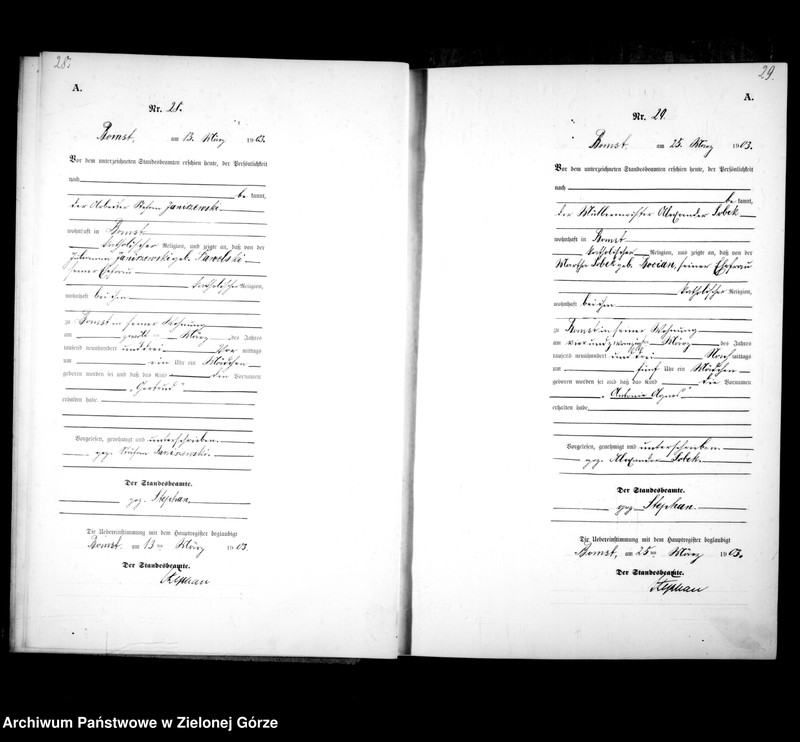 28.
A.
Nr. 28.
Bomst, am 13. März 1903.
Vor dem unterzeichneten Standesbeamten erschien heute, der Persönlichkeit
nach
be kannt,
der Arbeiter Stefan Janiszewski
wohnhaft in Bomst
katholischer Religion, und zeigte an, daß von der
Julianna Janiszewski geb.
seiner Ehefrau
katholischer Religion,
wohnhaft bei ihm
zu Bomst in seiner Wohnung
am März des Jahres
tausend neunhundert und drei Vor mittags
um ein Uhr ein Mädchen
geboren worden sei und daß das Kind den Vornamen
„Gertrud"
erhalten habe.
Vorgelesen, genehmigt und unterschrieben.
gez. Stefan Janiszewski.
Der Standesbeamte.
gez. Stephan.
Die Uebereinstimmung mit dem Hauptregister beglaubigt
Bomst am 13ten März 1903.
Der Standesbeamte.
Stephan
29.
A.
Nr. 29.
Bomst. am 25. März 1903.
Vor dem unterzeichneten Standesbeamten erschien heute, der Persönlichkeit
nach
be kannt,
der Müllermeister Alexander Sobek
wohnhaft in Bomst
katholischer Religion, und zeigte an, daß von der
Martha Sobek geb. Bocian, seiner Ehefrau
katholischer Religion,
wohnhaft bei ihm
zu Bomst in seiner Wohnung
am vierundzwanzigsten März des Jahres
tausend neunhundert und drei Nach mittags
um fünf Uhr ein Mädchen
geboren worden sei und daß das Kind die Vornamen
„Antonie Agnes"
erhalten habe
Vorgelesen, genehmigt und unterschrieben.
gez. Alexander Sobek.
Der Standesbeamte.
gez Stephan.
Die Uebereinstimmung mit dem Hauptregister beglaubigt
Bomst, am 25ten März 1903.
Der Standesbeamte.
Stephan
Archiwum Państwowe w Zielonej Górze